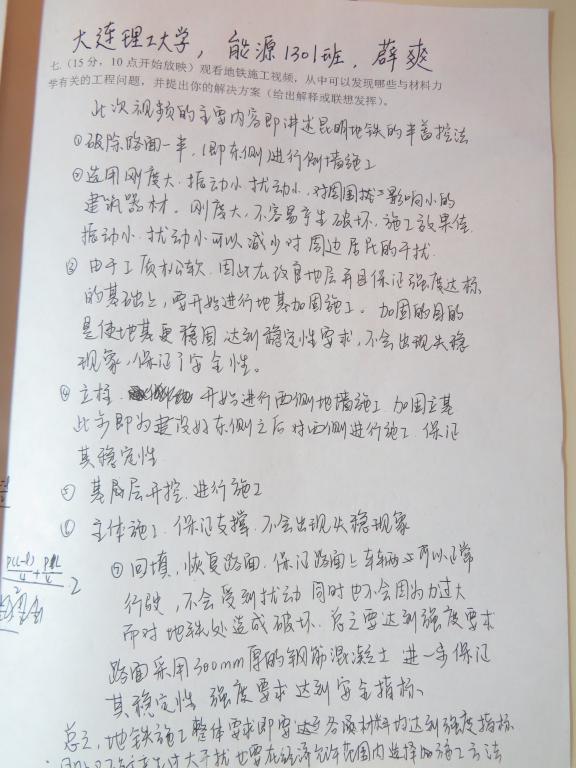 大连理工大学，能源1301班，薛爽
七、（15分，10点开始放映）观看地铁施工视频，从中可以发现哪些与材料力
学有关的工程问题，并提出你的解决方案（给出解释或联想发挥）。
此次视频的主要内容即讲述昆明地铁的半盖挖法
①破除路面一半，(即东侧)进行侧墙施工
②选用刚度大.振动小.扰动小.对周围 影响小的
建筑器材。刚度大，不容易产生破坏，施工效果佳
振动小.扰动小可以减少对周边居民的干扰.
③由于土质松软.因此在改良地层并且保证强度达标
的基础上，要开始进行地基加固施工。加固的目的
是使地基更稳固达到稳定性要求，不会出现失稳
现象，保证了安全性。
④立柱. 开始进行西侧地墙施工.加固立基
此步即为建设好东侧之后对西侧进行施工.保证
其稳定性.
⑤基层开挖.进行施工
⑥主体施工.保证支撑.不会出现失稳现象
⑦回填，恢复路面.保证路面上车辆 可以正常
行驶，不会受到扰动同时也不会因为力过大
而对地铁处造成破坏.总之要达到强度要求
路面采用300mm厚的钢筋混凝土进一步保证
其稳定性 强度要求 达到安全指标、
总之，地铁施工整体要求即要 各项材料均达到强度指标
过大干扰也要在经济允许范围内选择 施工方法